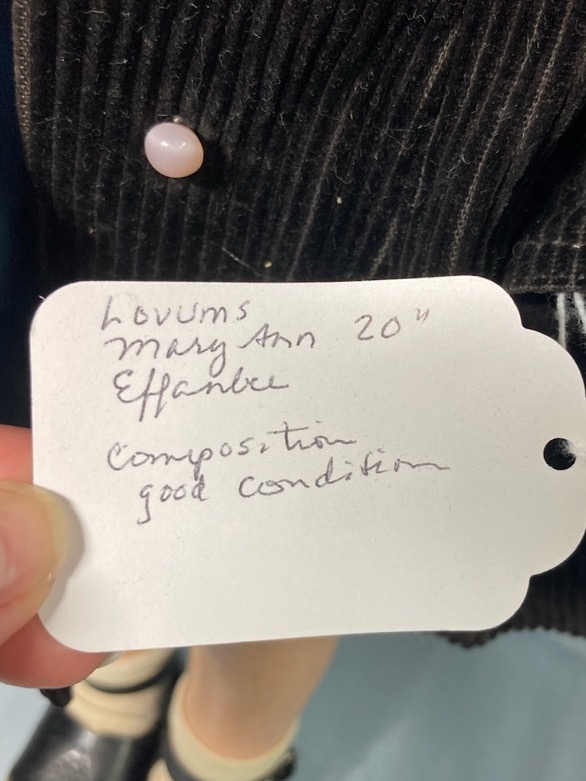 Lovums
Mary Ann 20"
Effanbee
composition
good condition